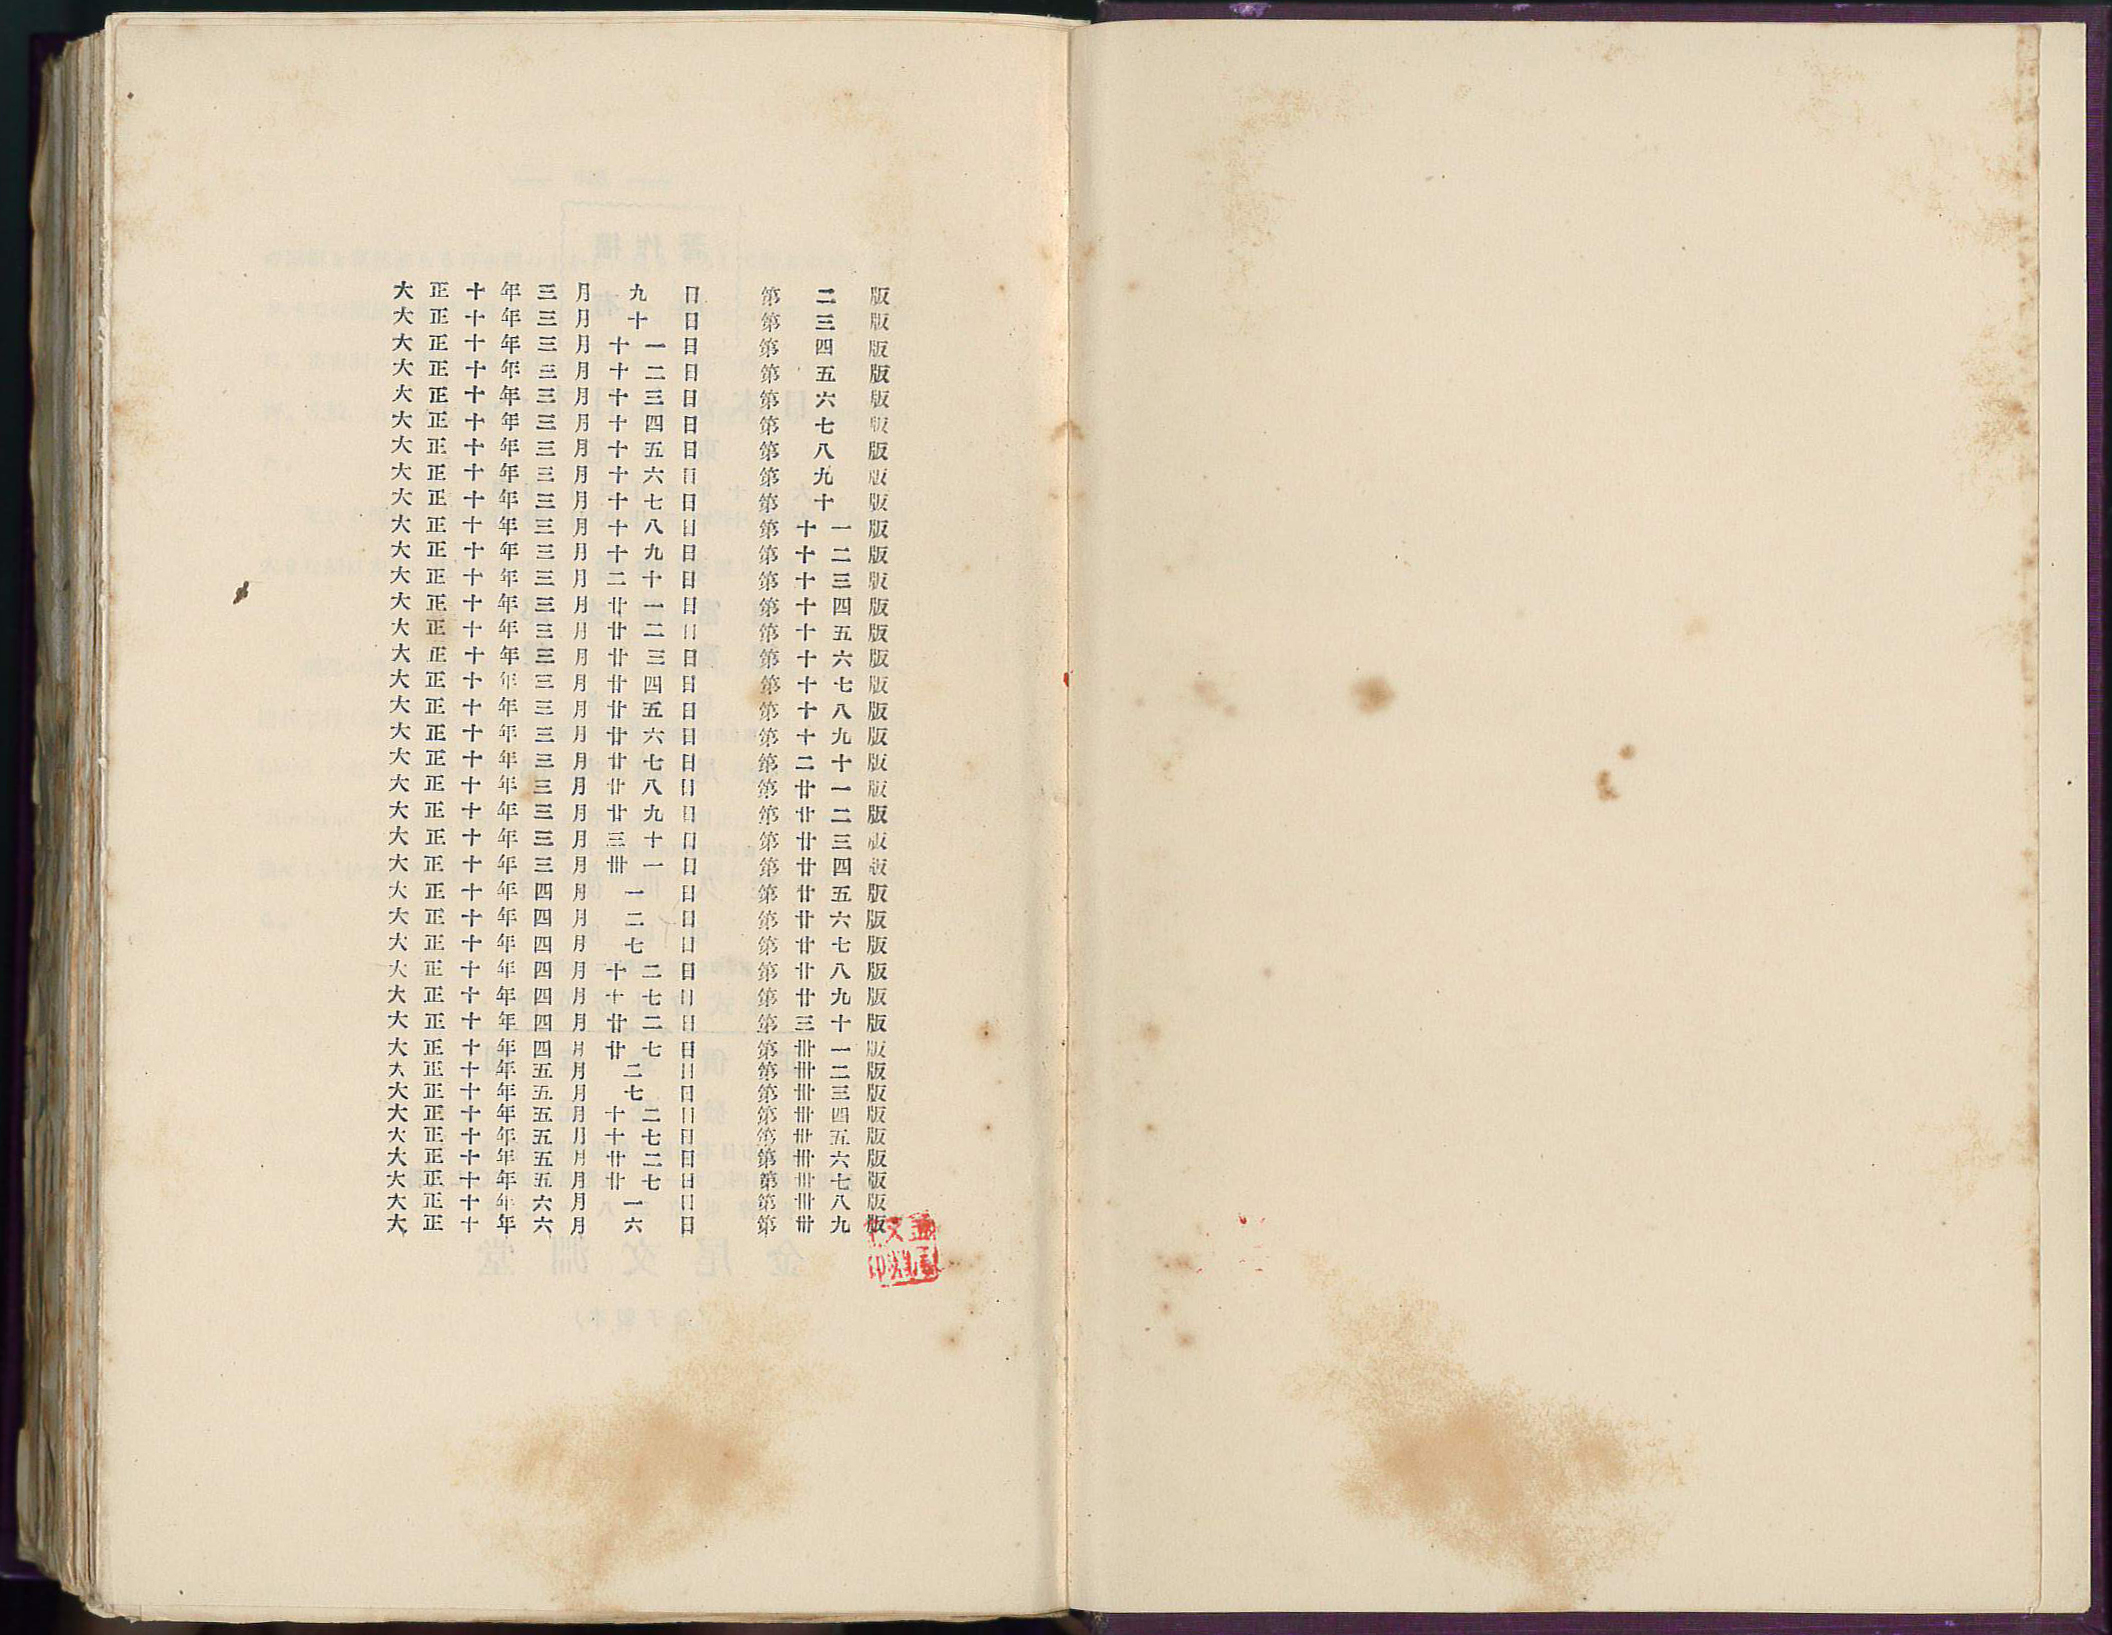 大正十年三月九日 第二版
大正十年三月十日 第三版
大正十年三月十一日 第四版
大正十年三月十二日 第五版
大正十年三月十三日 第六版
大正十年三月十四日 第七版
大正十年三月十五日 第八版
大正十年三月十六日 第九版
大正十年三月十七日 第十版
大正十年三月十八日 第十一版
大正十年三月十九日 第十二版
大正十年三月二十日 第十三版
大正十年三月廿一日 第十四版
大正十年三月廿二日 第十五版
大正十年三月廿三日 第十六版
大正十年三月廿四日 第十七版
大正十年三月廿五日 第十八版
大正十年三月廿六日 第十九版
大正十年三月廿七日 第二十版
大正十年三月廿八日 第廿一版
大正十年三月廿九日 第廿二版
大正十年三月三十日 第廿三版
大正十年三月卅一日 第廿四版
大正十年四月一日 第廿五版
大正十年四月二日 第廿六版
大正十年四月七日 第廿七版
大正十年四月十二日 第廿八版
大正十年四月十七日 第廿九版
大正十年四月廿二日 第三十版
大正十年四月廿七日 第卅一版
大正十年五月二日 第卅二版
大正十年五月七日 第卅三版
大正十年五月十二日 第卅四版
大正十年五月十七日 第卅五版
大正十年五月廿二日 第卅六版
大正十年五月廿七日 第卅七版
大正十年六月一日 第卅八版
大正十年六月六日 第卅九版